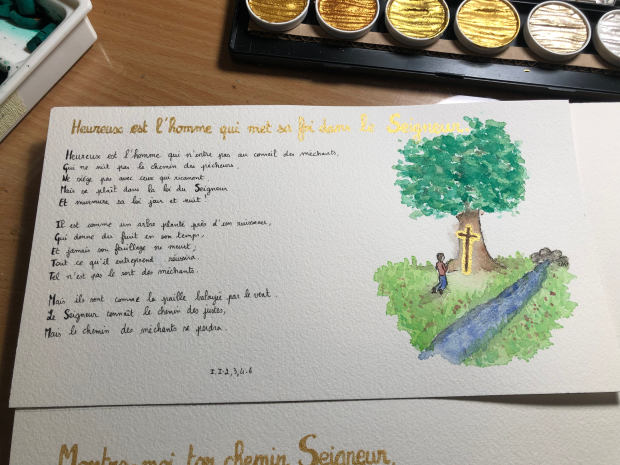 Heureux est l'homme qui met sa foi dans le Seigneur.
Heureux est l'homme qui n'entre pas au conseil des méchants,
Qui ne suit pas le chemin des pécheurs
Ne siège pas avec ceux qui ricanent
Mais se plaît dans la loi du Seigneur
Et murmure sa loi jour et nuit !
Il est comme un arbre planté près d'un ruisseau,
Qui donne du fruit en son temps,
Et jamais son feuillage ne meurt,
Tout ce qu'il entreprend réussira.
Tel n'est pas le sort des méchants.
Mais ils sont comme la paille balayée par le vent.
Le Seigneur connaît le chemin des justes,
Mais le chemin des méchants se perdra.
1.1-2,3,4-6
Montre-moi ton chemin Seigneur.